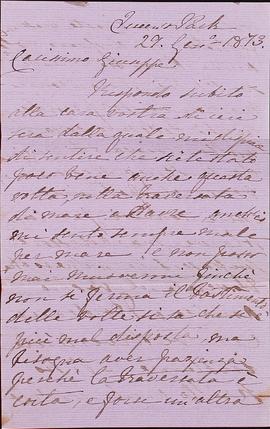 Queen's Park
27. Gen.º 1873.
Carissimo Giuseppe
Rispondo subito
alla cara vostra di ieri
sera dalla quale mi dispiace
di sentire che siete stato
poco bene anche questa
volta, nella traversata
di mare a Dover
mi sento sempre male
per mare e non posso
mai muovermi finchè
non si ferma il bastimento
delle volte si sta che si è
più mal disposti, ma
bisogna aver pazienza
perchè la traversata è
corta, e forse un'altra